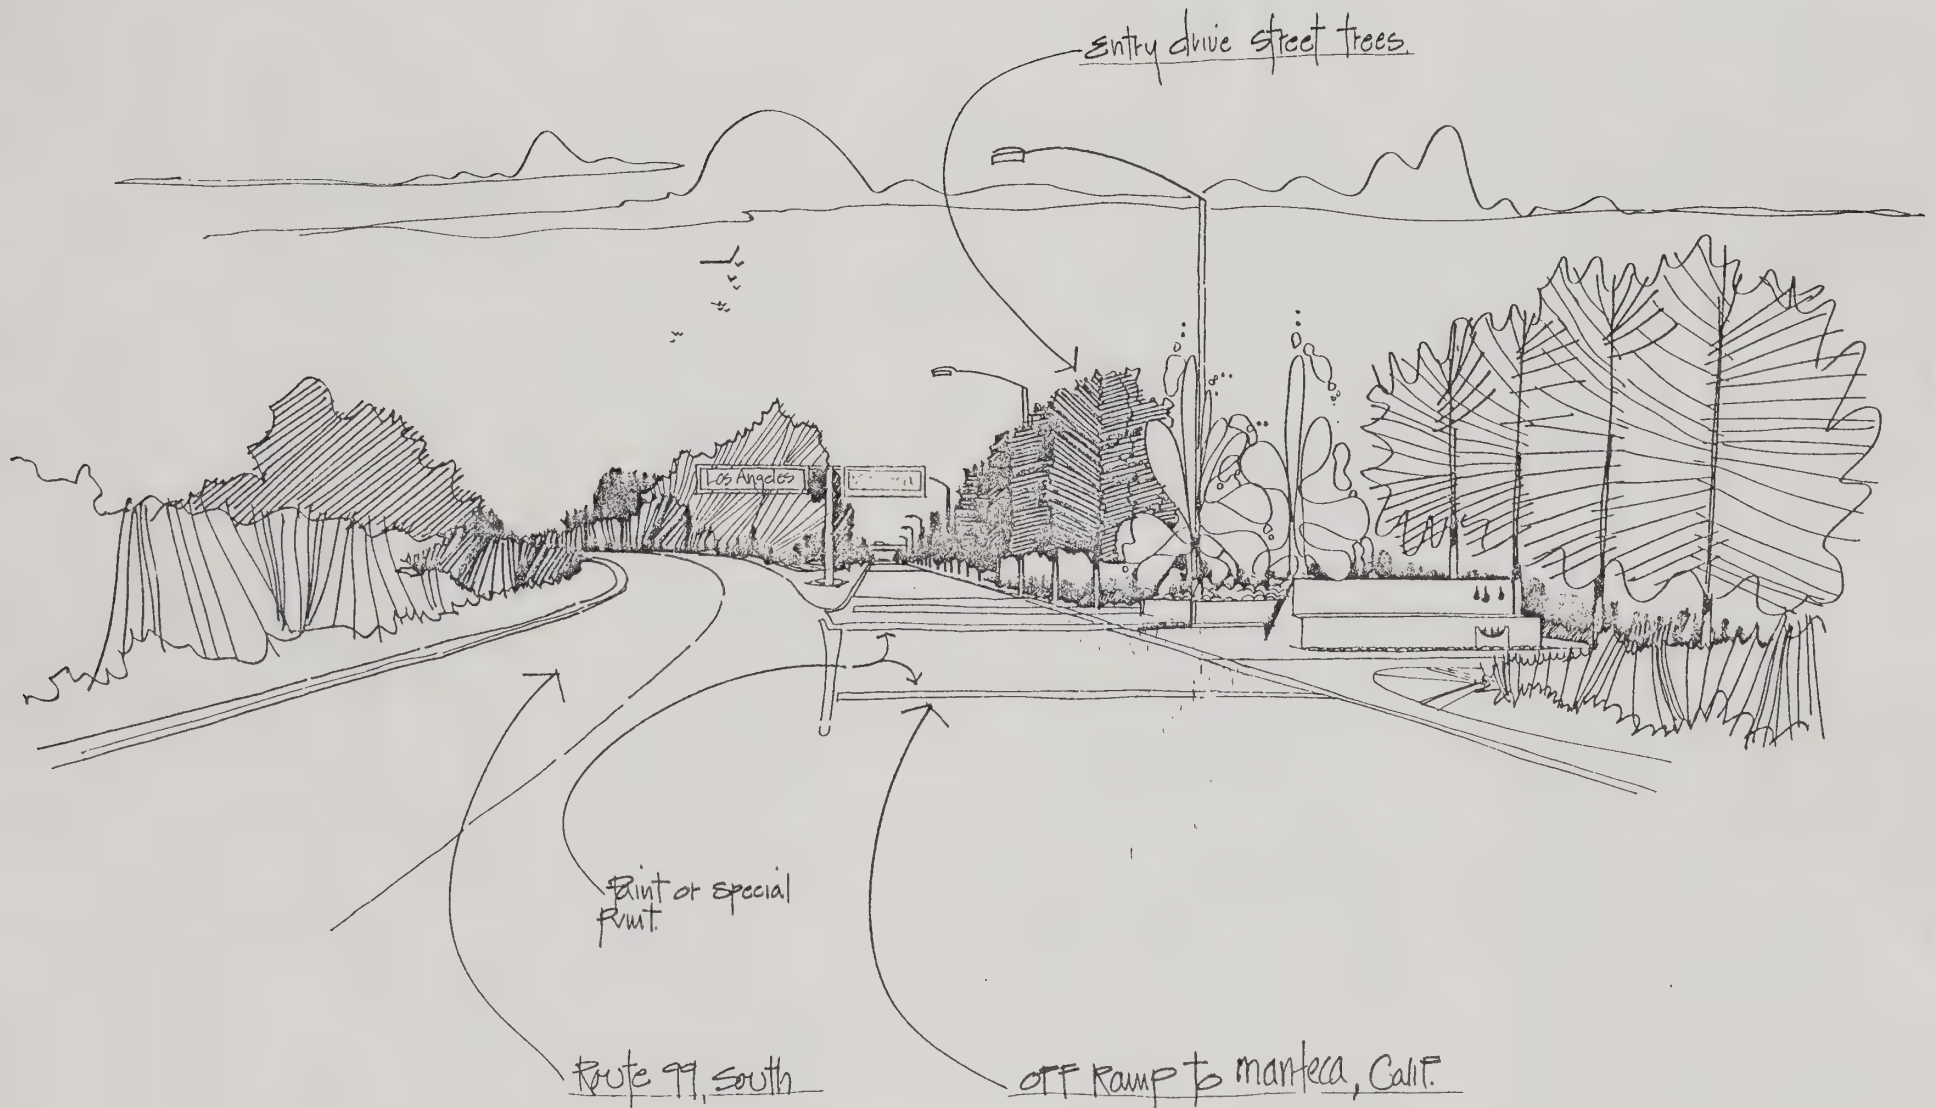 Entry drive street trees.
Los Angeles
Paint or special
Pvmt.
Route 99, South
Off Ramp to manteca, Calif.